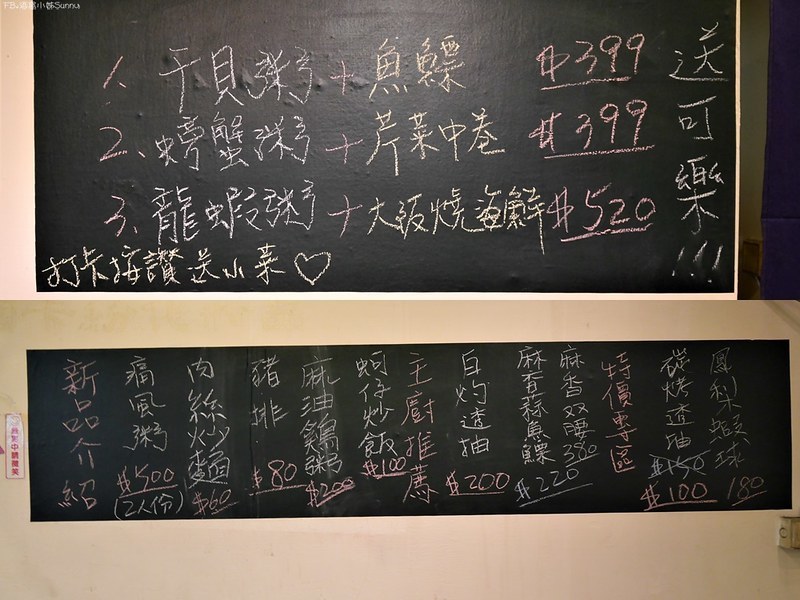 FB.滔滔小姊Sunny
1、干貝粥+魚鰾 $399
2、螃蟹粥+芹菜中卷 $399
3、龍蝦粥+大阪燒海鮮 $520
送可樂!!!
打卡按讚送小菜♡
鳳梨蝦球 180
碳烤透抽 $150 $100
特價專區
麻香双腰 380
麻香蒜魚鰾 $220
白灼透抽 $200
主廚推薦
蚵仔炒飯 $100
麻油鷄粥 $200
豬排 $80
肉絲炒麵 $60
痛風粥 $500 (2人份)
新品介紹